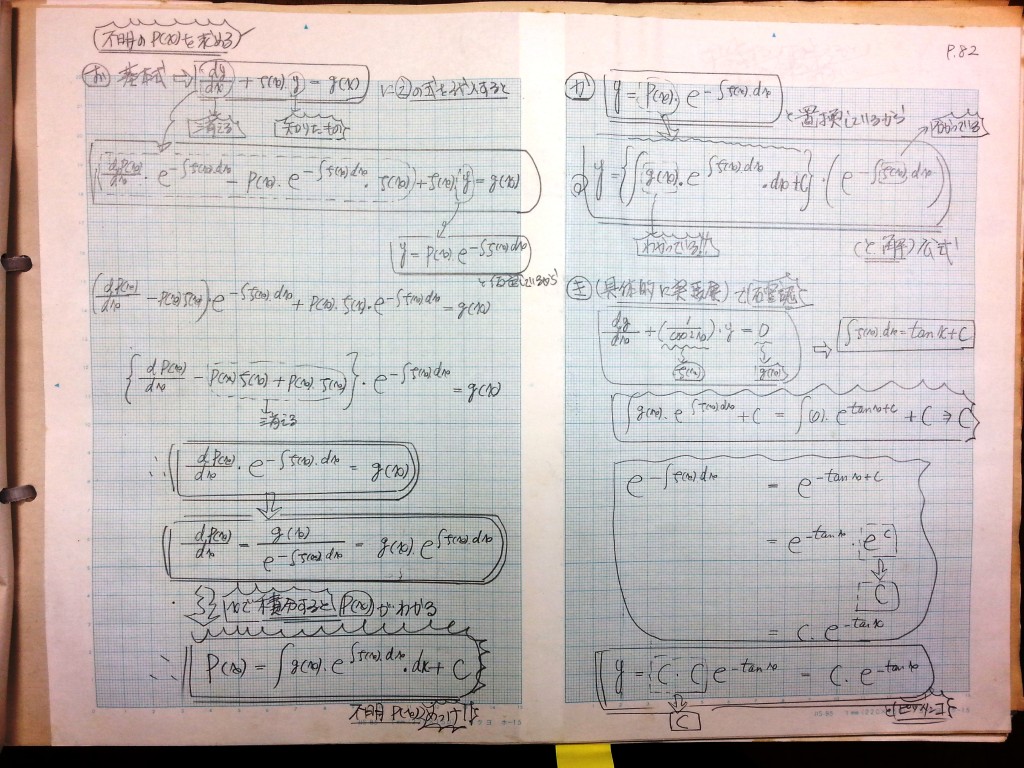 (不明のP(x)を求める)
お 基本式 ⇒ dy/dx + ζ(x)・y = g(x) に②の式を代入すると
消える 知りたもの
dP(x)/dx・e^{-∫ζ(x)・dx} - P(x)・e^{-∫ζ(x)・dx}・ζ(x) + ζ(x)・y = g(x)
y = P(x)・e^{-∫ζ(x)dx}
(dP(x)/dx - P(x)ζ(x))・e^{-∫ζ(x)dx} + P(x)・ζ(x)・e^{-∫ζ(x)dx} = g(x)
{dP(x)/dx - P(x)ζ(x) + P(x)・ζ(x)}・e^{-∫ζ(x)dx} = g(x)
消える
∴ dP(x)/dx・e^{-∫ζ(x)・dx} = g(x)
dP(x)/dx = g(x)/e^{-∫ζ(x)dx} = g(x)・e^{∫ζ(x)dx}
xで積分すると P(x)がわかる
∴ P(x) = ∫g(x)・e^{∫ζ(x)・dx}・dx + C
不明P(x)
P.82
か y = P(x)・e^{-∫ζ(x)dx} と置換しているから
わかっている
y = {∫g(x)・e^{∫ζ(x)dx}・dx + C}・(e^{-∫ζ(x)dx})
わかっている!! (と解く)公式
き (具体的に発展)
dy/dx + (1/cos²x)・y = 0 ⇒ ∫ζ(x)・dx = tan x + C
ζ(x) g(x)
∫g(x)・e^{∫ζ(x)dx} + C = ∫(0)・e^{tan x+C} + C ⇒ C
e^{-∫ζ(x)dx} = e^{-tan x+C}
= e^{-tan x}・e^C
C
= C・e^{-tan x}
y = C・C e^{-tan x} = C・e^{-tan x}
C